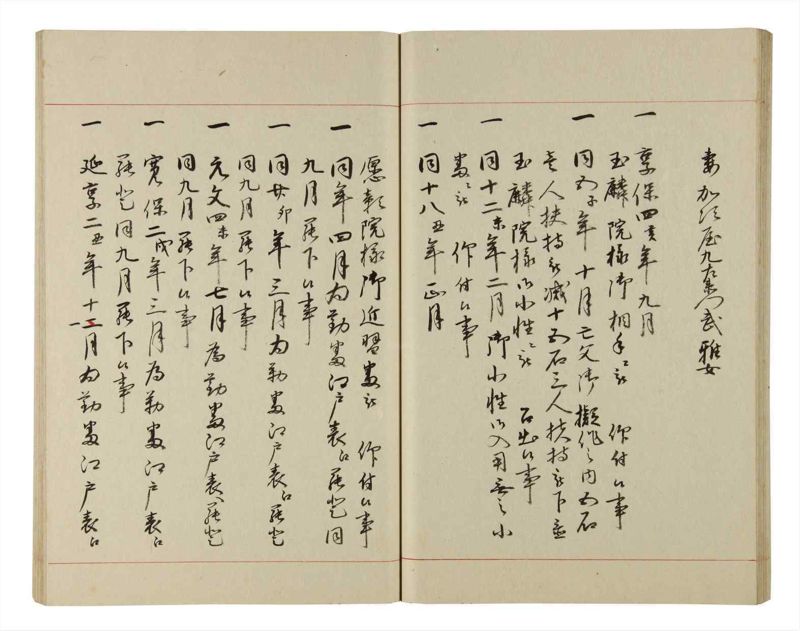 妻加須屋九左衛門武雅女
一 享保四亥年九月
玉麟院様御相手被 仰付候事
一 同五子年十月亡父御擬作之内五石
壱人扶持被減十五石三人扶持被下置
玉麟院様御小性被 召出候事
一 同十二未年二月御小性御入用無之小
 被 仰付候事
一 同十八丑年正月
愿彰院様御近習 被 仰付候事
一 同年四月為勤 江戸表江罷登同
九月罷下候事
一 同廿卯年三月為勤 江戸表江罷登
同九月罷下候事
一 元文四未年七月為勤 江戸表江罷登
同九月罷下候事
一 寛保二戌年三月為勤 江戸表江
罷登同九月罷下候事
一 延享二丑年十二月為勤 江戸表江